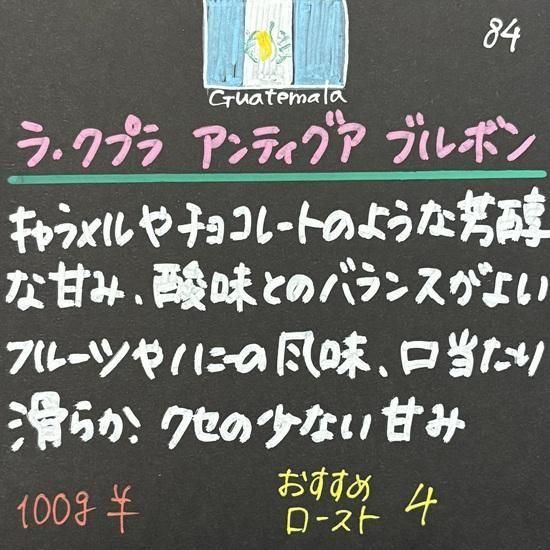 84
Guatemala
ラ・クプラ アンティグア ブルボン
キャラメルやチョコレートのような芳醇
な甘み、酸味とのバランスがよい
フルーツやハニーの風味、口当たり
滑らか、クセの少ない甘み
100g ¥
おすすめ
ロースト 4